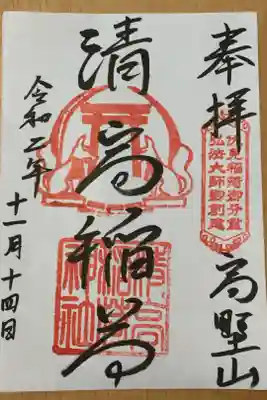 奉拝
高野山
伏見稲荷御分霊
弘法大師御創建
清高稲荷
清高
稲荷
神社
令和二年
十一月十四日